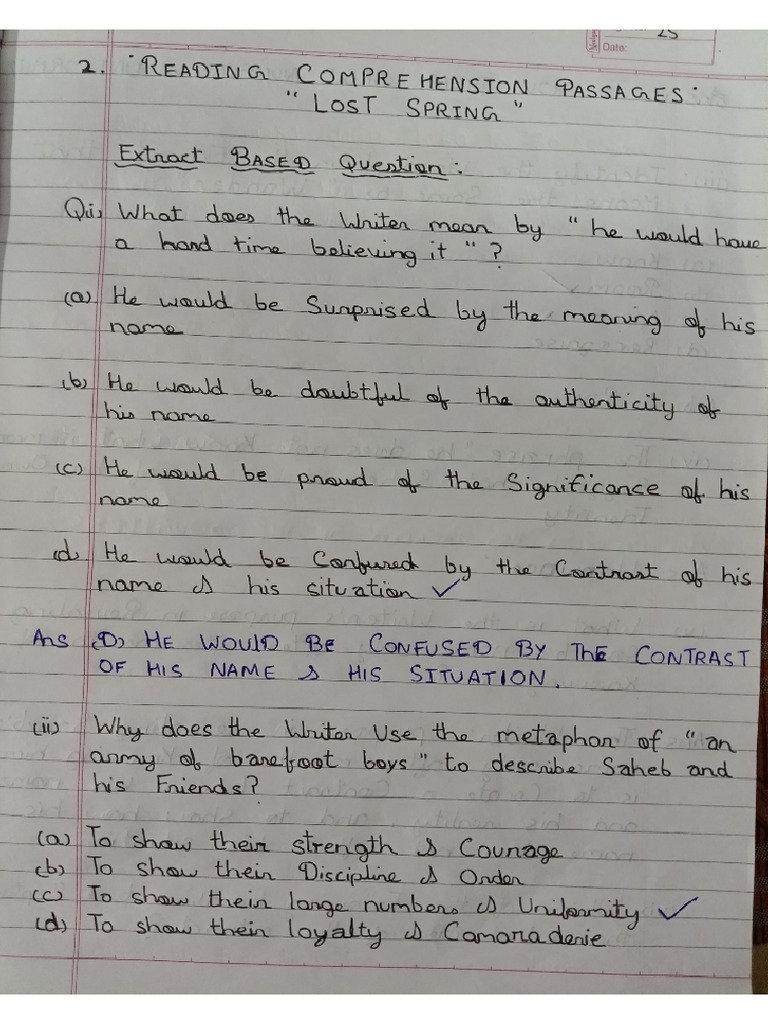 25
Date:
2. READING COMPREHENSION PASSAGES:
"LOST SPRING"
Extract BASED Question:
Q(i) What does the Writer mean by "he would have
a hard time believing it"?
(a) He would be Surprised by the meaning of his
name
(b) He would be doubtful of the authenticity of
his name
(c) He would be proud of the Significance of his
name
(d) He would be Confused by the Contrast of his
name & his situation ✓
Ans (D) HE WOULD BE CONFUSED BY THE CONTRAST
OF HIS NAME & HIS SITUATION.
(ii) Why does the Writer Use the metaphor of "an
army of barefoot boys" to describe Saheb and
his Friends?
(a) To show their strength & Courage
(b) To show their Discipline & Order
(c) To show their large numbers & Uniformity ✓
(d) To show their loyalty & Camaraderie